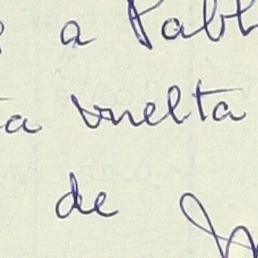 a Pabl
ta vuelta
de